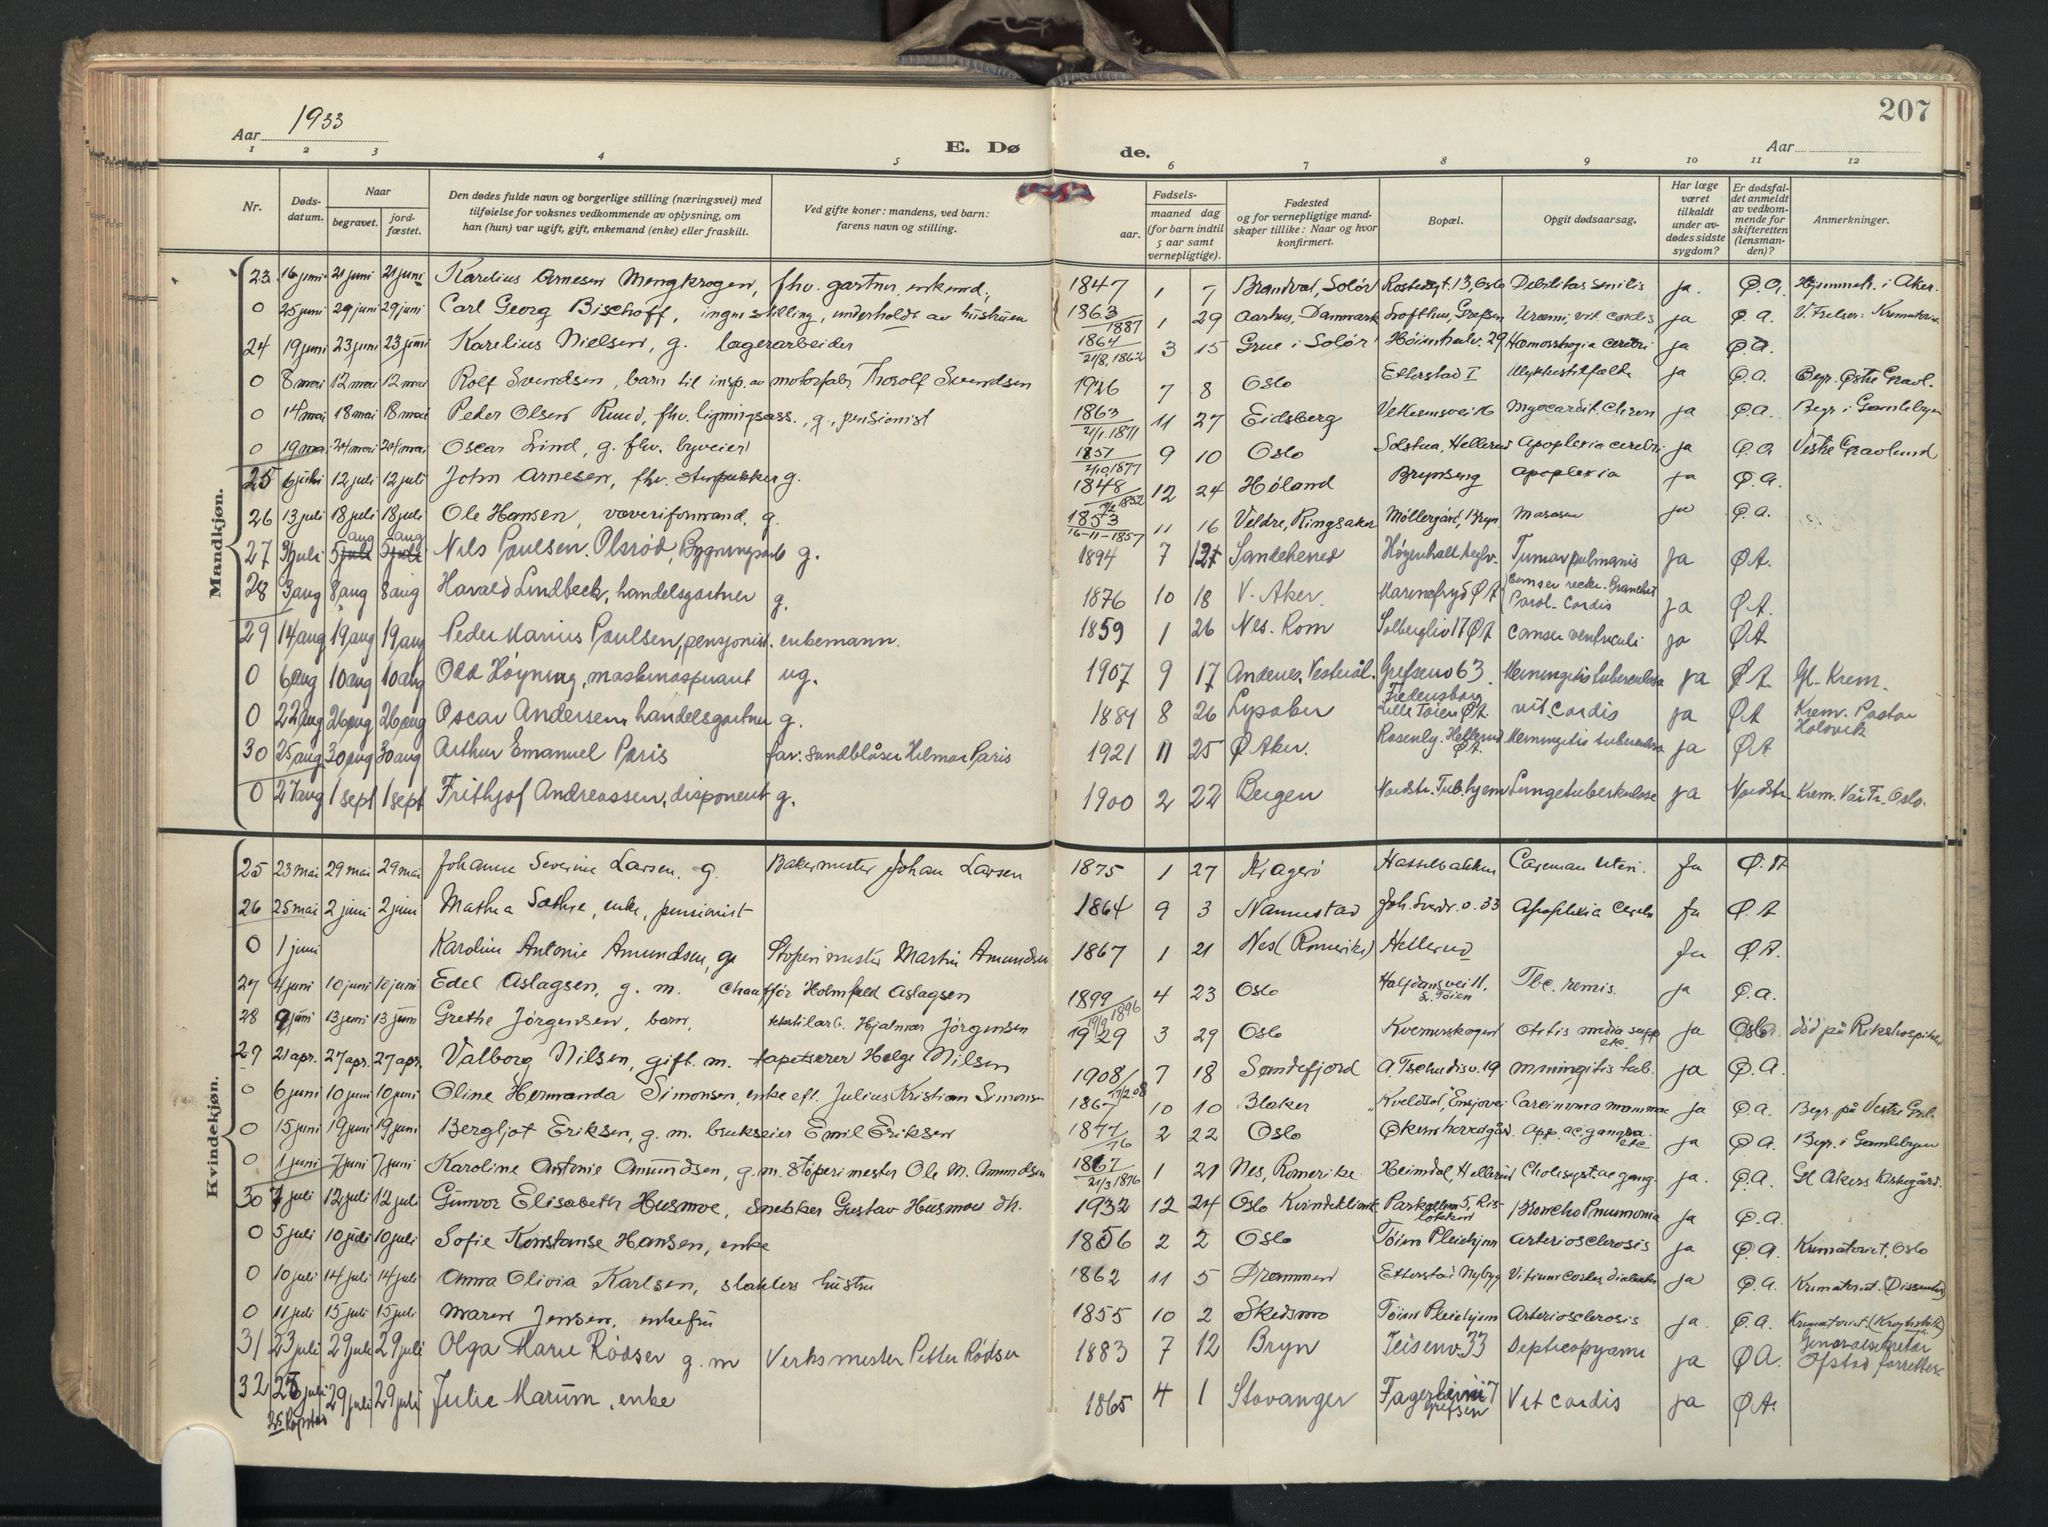 207
Aar 1933
E. Døde.
Aar
1 2 3 4 5 6 7 8 9 10 11 12
Nr.
Dødsdatum.
Naar
begravet.
jordfæstet.
Den dødes fulde navn og borgerlige stilling (næringsvei) med
tilføielse for voksnes vedkommende av oplysning, om
han (hun) var ugift, gift, enkemand (enke) eller fraskilt.
Ved gifte koner: mandens, ved barn:
farens navn og stilling.
Fødsels-
aar.
maaned dag
(for barn indtil
5 aar samt
vernepligtige).
Fødested
og for vernepligtige mandskaper tillike: Naar og hvor
konfirmert.
Bopæl.
Opgit dødsaarsag.
Har læge
været
tilkaldt
under avdødes sidste
sygdom?
Er dødsfaldet anmeldt
av vedkommende for
skifteretten
(lensmanden)?
Anmerkninger.
Mandkjøn.
23 16 juni 21 juni 21 juni Karelius Arnesen Mengkrogen, fhv. gartner, enkemd. 1847 1 7 Brandval, Solør 13, Oslo Debilitas senilis ja. Ø.A. i Aker.
0 25 juni 29 juni 29 juni Carl Georg Bischoff, ingen stilling, underholdt av hustruen 1863/1887 1 29 Aarhus, Danmark Lofthus, Grefsen Uræmi, vit. cordis ja Ø.A.
24 19 juni 23 juni 23 juni Karelius Nielsen, g. lagerarbeider 1864 21/8, 1862 3 15 Grue i Solør 29 Hæmorrhagia cerebri ja Ø.A.
0 8 mai 12 mai 12 mai Rolf Svendsen, barn til insp. av motorfabr. Thorolf Svendsen 1926 7 8 Oslo Etterstad I Ulykkestilfælde ja Ø.A. Begr. Østre Gravl.
0 14 mai 18 mai 18 mai Peder Olsen Ruud, fhv. ligningsass., g., pensionist 1863 21/1 1871 11 27 Eidsberg 16 Myocardit. chron ja Ø.A. Begr. i Gamlebyen
0 19 mai 24 mai 24 mai Oscar Lind, g. fhv. byveier 1857 2/10 1877 9 10 Oslo Solstua, Hellerud Apoplexia cerebri ja Ø.A. Vestre Gravlund
25 6 juli 12 juli 12 juli John Arnesen, fhv. stenpukker g. 1848 1852 12 24 Høland Brynseng Apoplexia ja Ø.A.
26 13 juli 18 juli 18 juli Ole Hansen, væveriformand, g. 1853 16-11-1857 11 16 Veldre, Ringsaker Møllergård, Bryn ja Ø.A.
27 31 juli 5 aug 5 aug Nils Paulsen Olsrød, Bygningsarb g. 1894 7 Sandeherred Tumor pulmonis ja Ø.A.
28 3 aug 8 aug 8 aug Harald Lindbeck, handelsgartner g. 1876 10 18 V. Aker. Marienfryd Ø.A. Paral. Cordis ja Ø A.
29 14 aug 19 aug 19 aug Peder Marius Paulsen, pensjonist. enkemann. 1859 1 26 Nes. Rom Solbergliv 17 Ø.A Canser ventriculi ja Ø A
0 6 aug 10 aug 10 aug Odd Høyning, maskinaspirant ug. 1907 9 17 Andenes, Vesterål. Grefsenv 63. Meningitis tuberculosa ja Ø A. Gl. Krem.
0 22 aug 26 aug 26 aug Oscar Andersen, handelsgartner g. 1881 8 26 Lysaker Fredensborg Lille Tøien Ø.A. vit. Cordis ja Ø A Krem. Pastor
30 25 aug 30 aug 30 aug Arthur Emanuel Paris far: sandblåser Hilmar Paris 1921 11 25 Ø Aker. Rosenly. Hellerud Ø.A. Meningitis tuberculosa ja Ø A
0 27 aug 1 sept 1 sept Frithjof Andreassen, disponent g. 1900 2 22 Bergen Nordstr. Tub.hjem Lungetuberkulose ja Nordstr. Krem. Vår Fr. Oslo.
Kvindekjøn.
25 23 mai 29 mai 29 mai Johanne Severine Larsen, g. Bakermester Johan Larsen 1875 1 27 Kragerø Hasselbakken uteri. ja Ø.A
26 25 mai 2 juni 2 juni Mathea Sæthre, enke, pensionist 1864 9 3 Nannestad Joh. Sverdr. v. 33 Apoplexia Cerebri ja Ø.A
0 1 juni Karoline Antonie Amundsen, g. Støperimester Martin Amundsen 1867 1 21 Nes (Romerike) Hellerud ja Ø.A.
27 4 juni 10 juni 10 juni Edel Aslagsen, g. m. chauffør Holmfred Aslagsen 1899 1896 4 23 Oslo Halfdansvei 11, L. Tøien Tbc. renis. ja Ø.A.
28 9 juni 13 juni 13 juni Grethe Jørgensen, barn, tekstilarb. Hjalmar Jørgensen 1929 3 29 Oslo Kvernerskogen Otitis media supp etc. ja Oslo. død på Rikshospitalet
29 21 apr. 27 apr. 27 apr. Valborg Nilsen, gift. m. tapetserer Helge Nilsen 1908 7 18 Sandefjord A. Tschudisv. 19 Miningitis tub. ja Ø.A.
0 6 juni 10 juni 10 juni Oline Hermanda Simonsen, enke eft. Julius Kristian Simonsen 1867 10 10 Blaker "Kveldsol", Ensjøvei Carcinoma mammae ja Ø.A. Begr. på Vestre Gravl.
0 15 juni 19 juni 19 juni Bergljot Eriksen, g. m. brukseier Emil Eriksen 1877 2 22 Oslo Økern hovedgård. App. ac. gangræ. etc ja Ø.A. Begr. i Gamlebyen
0 1 juni 7 juni 7 juni Karoline Antonie Amundsen, g. m. støperimester Ole M. Amundsen 1867 21/3 1876 1 21 Nes, Romerike. Heimdal, Hellerud Cholecyst. ac. gang. ja. Ø.A. Gl Akers Kirkegård.
30 7 juli 12 juli 12 juli Gunvor Elisabeth Husmoe, Snekker Gustav Husmoes dtr. 1932 12 24 Oslo Kvindeklinik Bronchopneumonia ja Ø.A.
0 5 juli 10 juli 10 juli Sofie Konstanse Hansen, enke 1856 2 2 Oslo Tøien Pleiehjem Arteriosclerosis ja Ø.A. Krematoriet, Oslo
0 10 juli 14 juli 14 juli Anna Olivia Karlsen, slakters hustru 1862 11 5 Drammen Etterstad Nybyg Vitium cordis, diabetes ja Ø.A. Krematoriet. (Dissenter)
0 11 juli 15 juli 15 juli Maren Jensen, enkefru 1855 10 2 Skedsmo Tøien Pleiehjem Arteriosclerosis ja. Ø.A. Krematoriet.
31 23 juli 29 juli 29 juli Olga Marie Rødser g. m Verksmester Petter Rødser 1883 7 12 Bryn Teisenv. 33 Septicopyæmi ja Ø A. Generalsekretær Ofstad forrettet.
32 juli 29 juli 29 juli Julie Marum, enke 1865 4 1 Stavanger Grefsen Vit cordis ja Ø A.